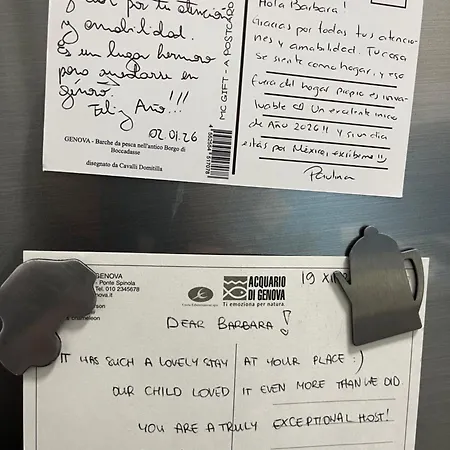 por tu atención
y amabilidad.
Es un lugar hermoso
para quedarse en
Genova.
Feliz Año!!!
02.01.26
GENOVA - Barche da pesca nell'antico Borgo di
Boccadasse
disegnato da Cavalli Domitilla
MC GIFT - A POSTCARD
Hola Barbara!
Gracias por todas tus atencio-
nes y amabilidad. Tu casa
se siente como hogar, y eso
fuera del hogar propio es inva-
luable. Un excelente inicio
de Año 2026!! Y si un día
estás por México, escríbeme!!
Paulina
GENOVA
- Ponte Spinola
Tel. 010 2345678
nova.it
erson
chameleon
ACQUARIO
DI GENOVA
Ti emoziona per natura.
19 XII
DEAR BARBARA!
IT WAS SUCH A LOVELY STAY AT YOUR PLACE :)
OUR CHILD LOVED IT EVEN MORE THAN WE DID.
YOU ARE A TRULY EXCEPTIONAL HOST!